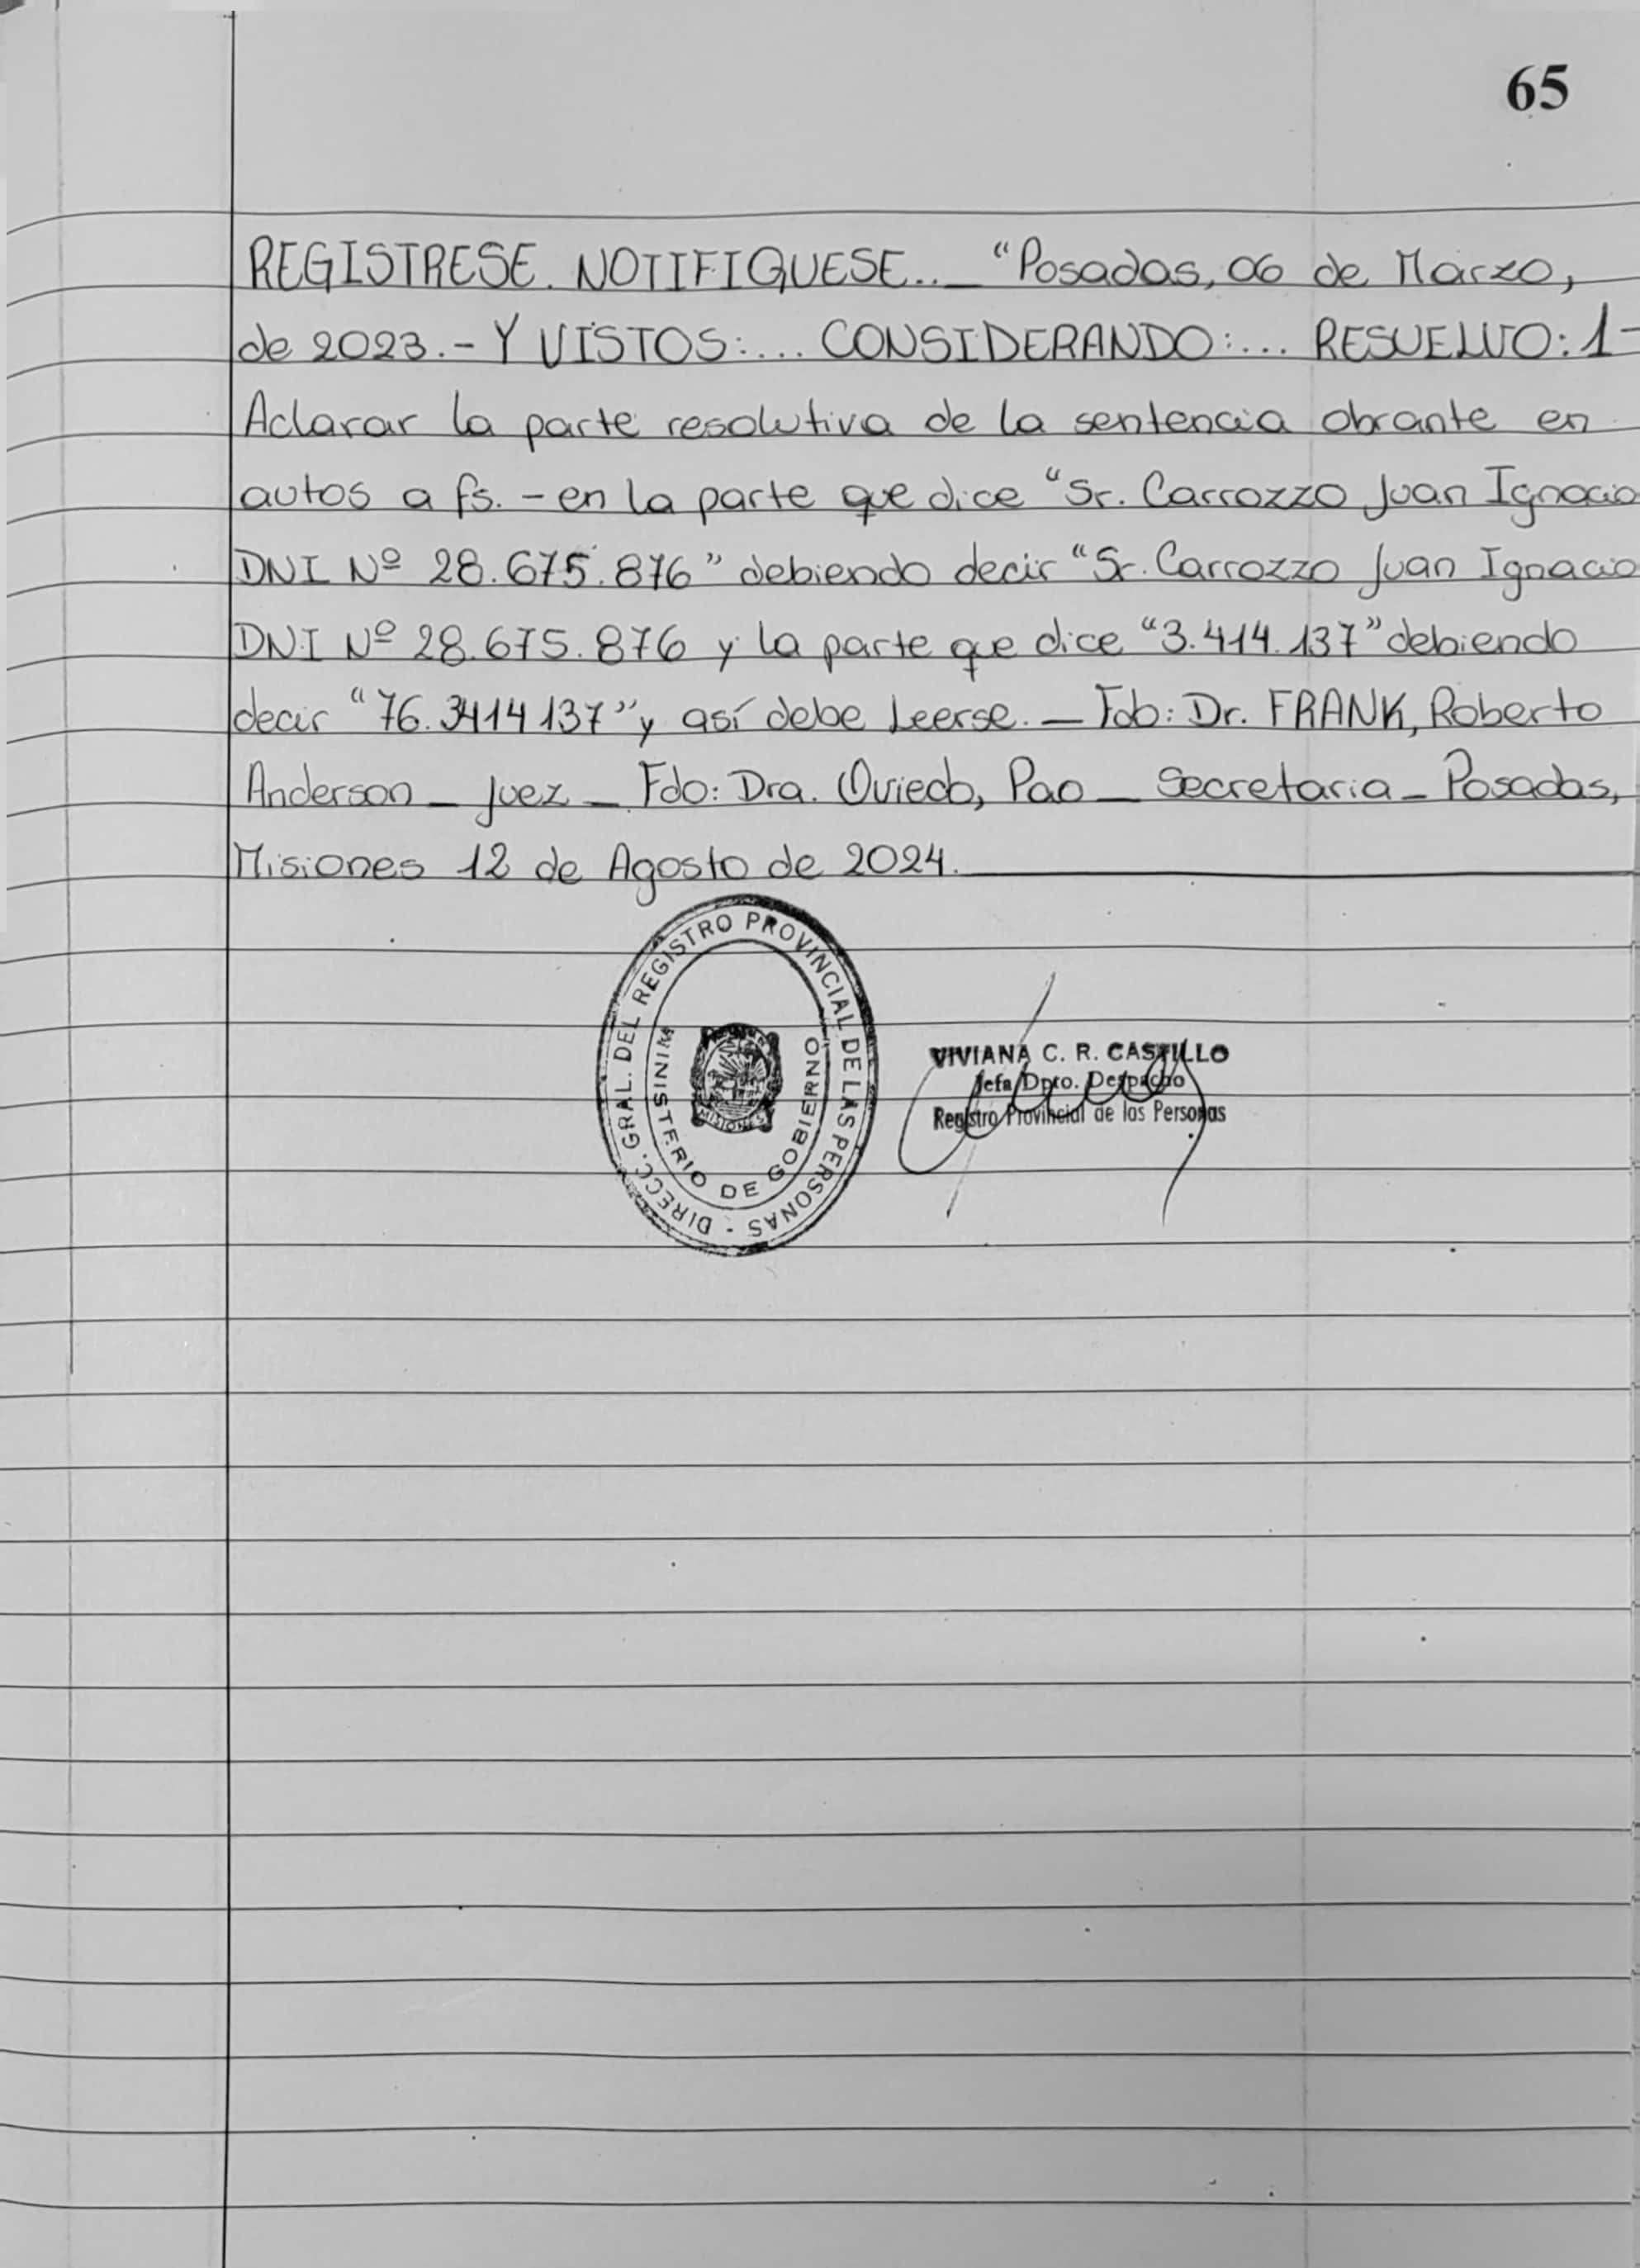 65
REGISTRESE. NOTIFIQUESE.. _ "Posadas, 06 de Marzo,
de 2023.- Y VISTOS:... CONSIDERANDO:... RESUELVO: 1-
Aclarar la parte resolutiva de la sentencia obrante en
autos a fs. - en la parte que dice "Sr. Carrozzo Juan Ignacio
DNI Nº 28.675.876" debiendo decir "Sr. Carrozzo Juan Ignacio
DNI Nº 28.675.876 y la parte que dice "3.414.137" debiendo
decir "76.3414137" y así debe Leerse. _ Fdo: Dr. FRANK, Roberto
Anderson _ Juez _ Fdo: Dra. Oviedo, Pao _ Secretaria _ Posadas,
Misiones 12 de Agosto de 2024.
DIRECC. GRAL. DEL REGISTRO PROVINCIAL DE LAS PERSONAS -
MINISTERIO DE GOBIERNO
MISIONES
VIVIANA C. R. CASTILLO
Jefa Dpto. Despacho
Registro Provincial de las Personas